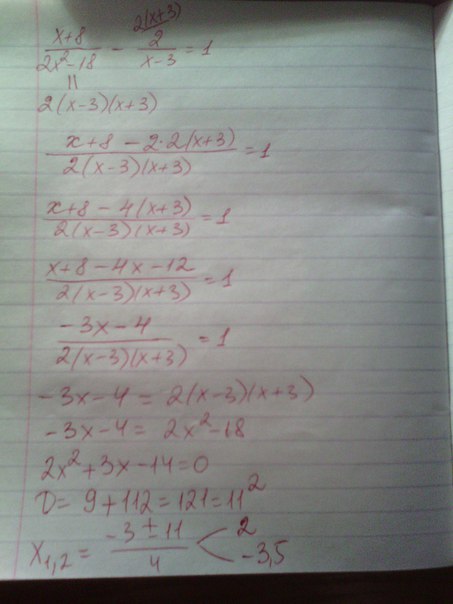 2(x+3)
(x+8)/(2x²-18) - 2/(x-3) = 1
=
2(x-3)(x+3)
(x+8-2·2(x+3))/(2(x-3)(x+3)) = 1
(x+8-4(x+3))/(2(x-3)(x+3)) = 1
(x+8-4x-12)/(2(x-3)(x+3)) = 1
(-3x-4)/(2(x-3)(x+3)) = 1
-3x-4 = 2(x-3)(x+3)
-3x-4 = 2x²-18
2x²+3x-14=0
D= 9+112=121=11²
x₁,₂ = (-3±11)/4 < 2
-3,5